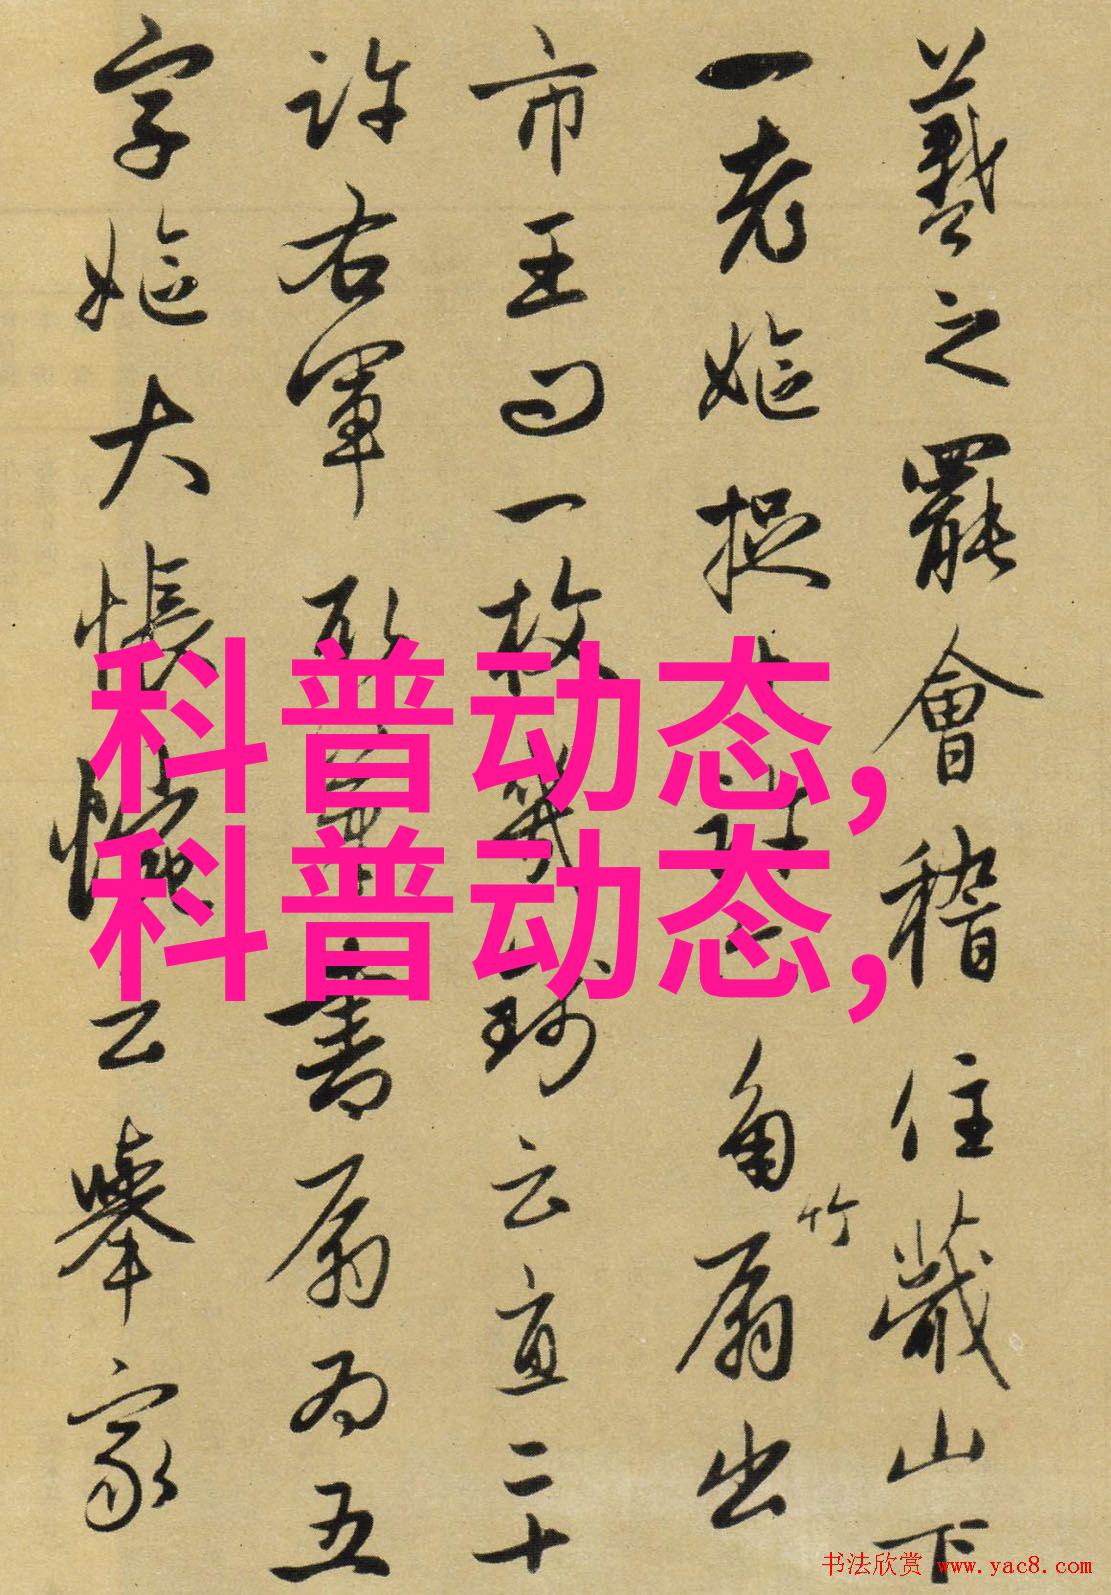 羲之罷會稽住蕺山下
一老嫗捉 角扇出
竹
市王曰一枚幾 云直二十
許右軍 書扇為五
字嫗大悵惋云舉家
科普动态,
科普动态,
书法欣赏 www.yac8.com